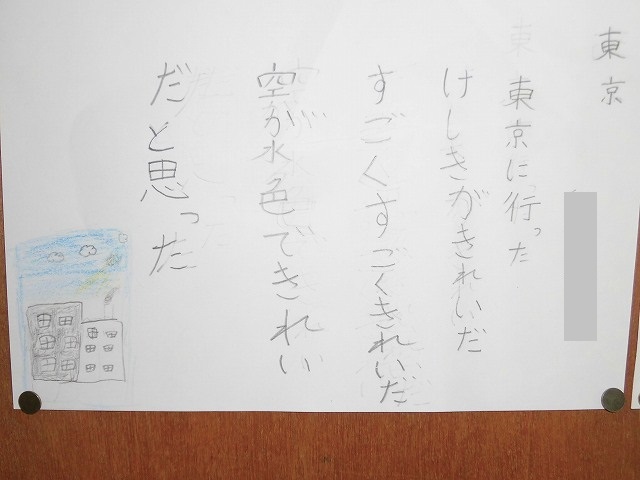 東京
東京に行った
けしきがきれいだ
すごくすごくきれいだ
空が水色できれい
だと思った